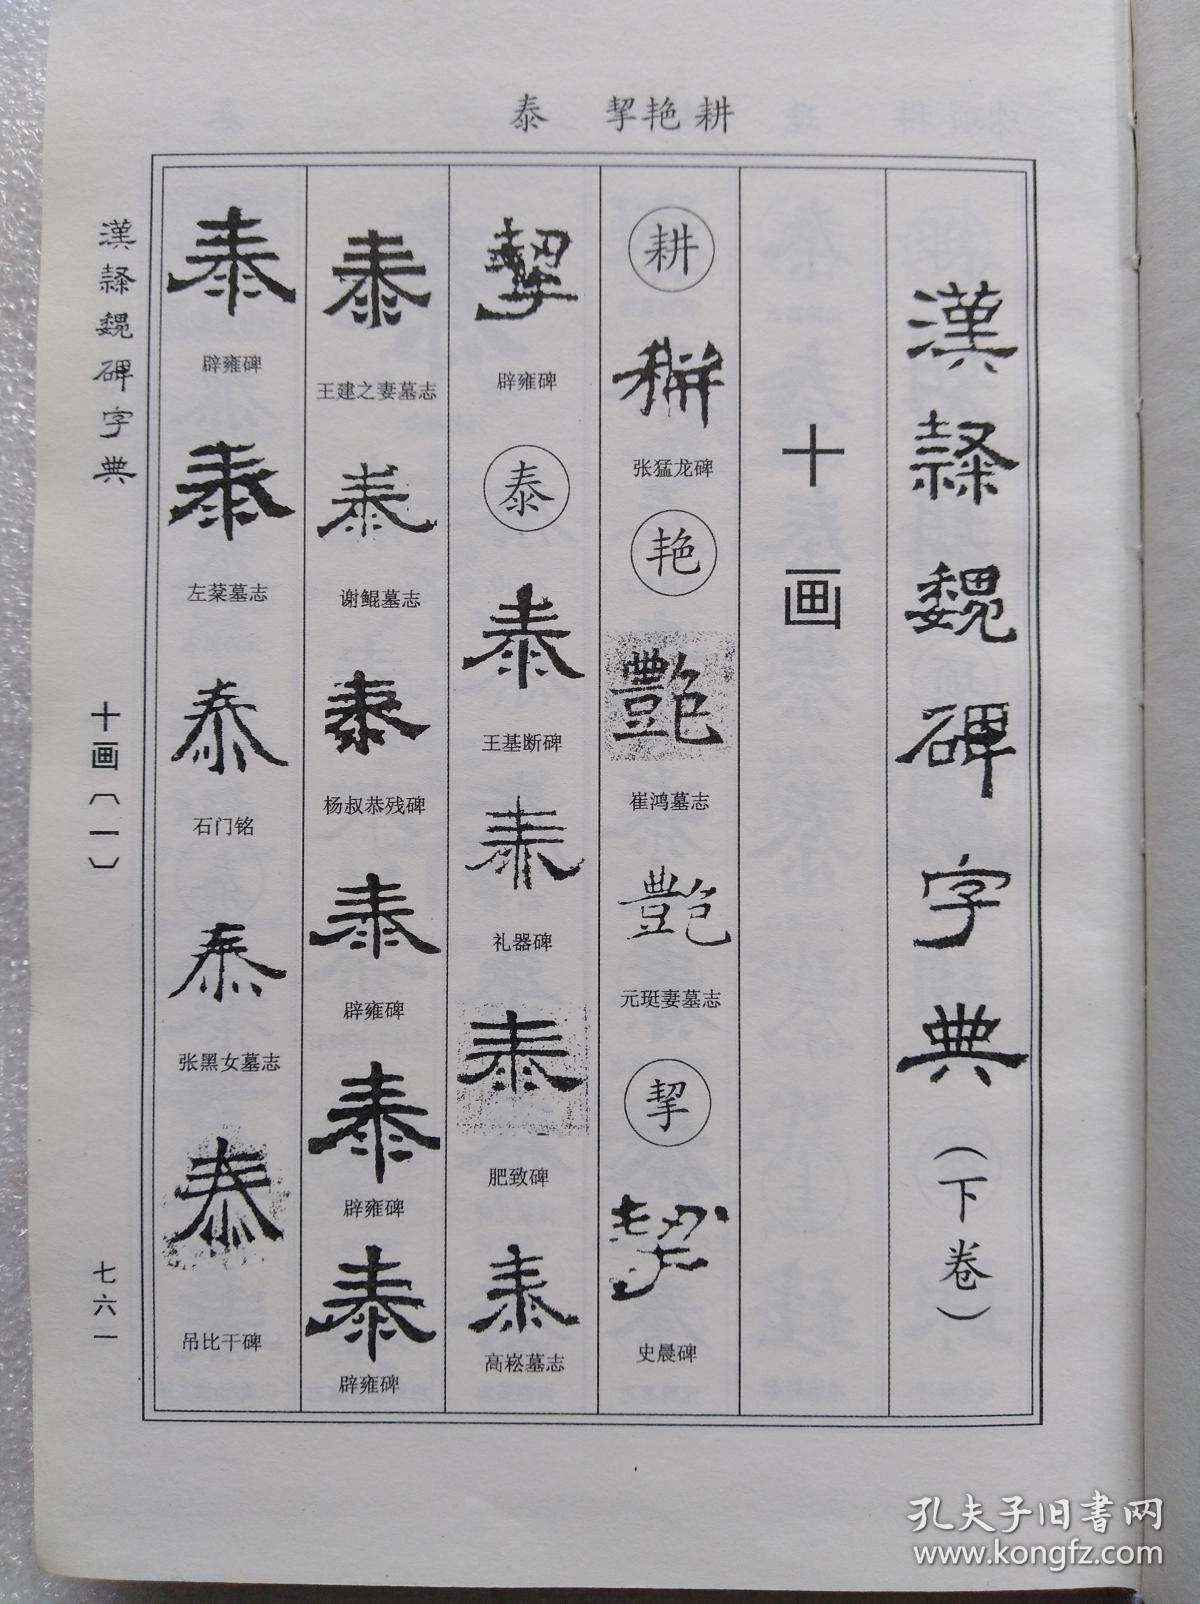 泰 挈艳耕
漢隸魏碑字典（下卷）
十画
耕
耕
张猛龙碑
艳
豔
崔鸿墓志
豔
元珽妻墓志
挈
挈
史晨碑
挈
辟雍碑
泰
泰
王基断碑
泰
礼器碑
泰
肥致碑
泰
高崧墓志
泰
王建之妻墓志
泰
谢鲲墓志
泰
杨叔恭残碑
泰
辟雍碑
泰
辟雍碑
泰
辟雍碑
泰
辟雍碑
泰
左棻墓志
泰
石门铭
泰
张黑女墓志
泰
吊比干碑
漢隸魏碑字典
十画〔一〕
七六一
孔夫子旧书网
www.kongfz.com